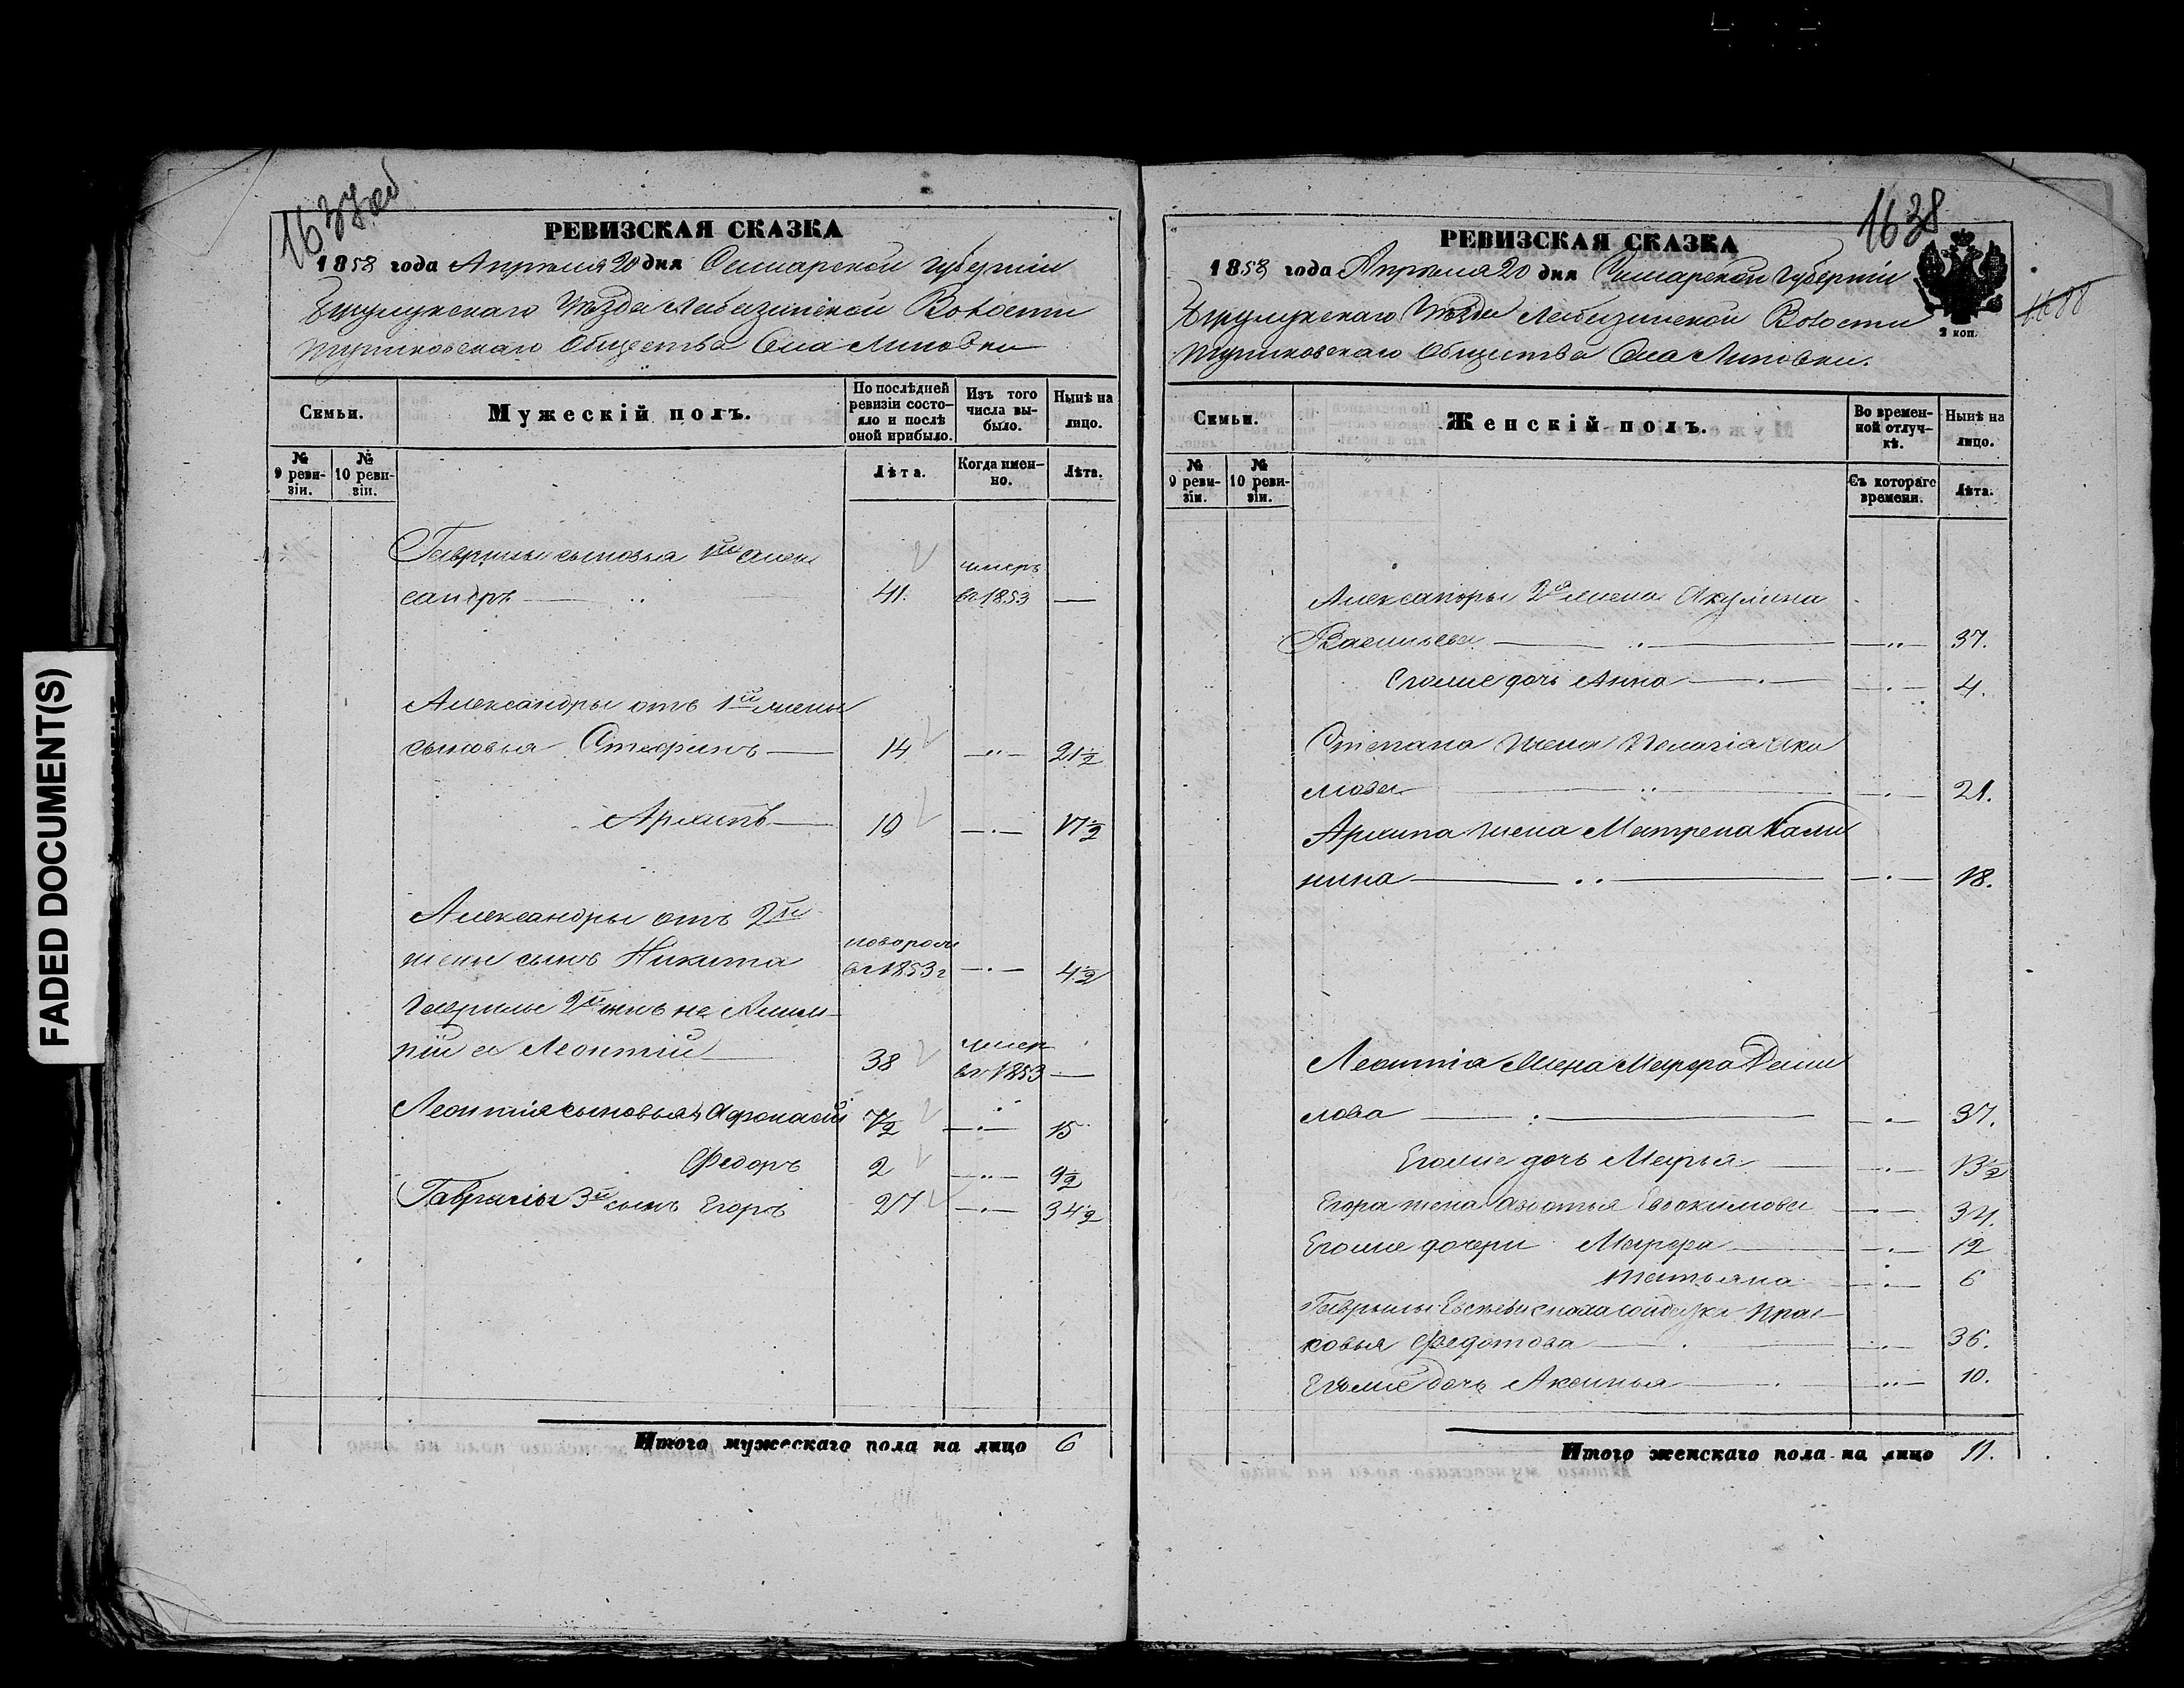 FADED DOCUMENT(S)
1637 об
РЕВИЗСКАЯ СКАЗКА
1858 года Апреля 20 дня Самарской губернии
Бузулукскаго Уезда Волости
Общества Села Липовки
Семьи.
Мужескій полъ.
По послѣдней ревизіи состо-
яло и послѣ
оной прибыло.
Изъ того
числа вы-
было.
Нынѣ на
лицо.
№
9 реви-
зіи.
№
10 реви-
зіи.
Лѣта.
Когда имен-
но.
Лѣта.
Гаврилы сыновья 1й Алек
сандръ 41. умеръ въ 1853 —
Александры отъ 1й жены
сыновья 14 —"— 21½
Архипъ 10 —"— 17½
Александры отъ 2й
жены сынъ Никита новорож въ 1853г —"— 4½
Гаврилы 2й
Леонтій 38 умер въ 1853 —
Леонтія сыновья Афонасій 7½ —"— 15
Федоръ 2 —"— 9½
Гаврилы 3й сынъ Егоръ 27 —"— 34½
Итого мужескаго пола на лицо 6
1638
РЕВИЗСКАЯ СКАЗКА
1858 года Апреля 20 дня Самарской Губерніи
Бузулукскаго Уезда Волости
Общества Села Липовки.
2 коп.
Семьи.
Женскій полъ.
Во времен-
ной отлуч-
кѣ.
Нынѣ на
лицо.
№
9 реви-
зіи.
№
10 реви-
зіи.
Съ котораго
времени.
Лѣта.
Александры 2я жена Акулина
Васильева —"— 37.
Егоже дочь Анна —"— 4.
Степана жена Пелагія Яко
влева —"— 21.
Архипа жена Матрена Кали
нина —"— 18.
Леонтія жена Марфа Дани
лова —"— 37.
Егоже дочь Марья —"— 13½
Егора жена Авдотья Евдокимова —"— 34.
Егоже дочери Марфа —"— 12
Татьяна —"— 6
Гаврилы Прас-
ковья Федотова —"— 36.
Егоже дочь Аксинья —"— 10.
Итого женскаго пола на лицо 11.